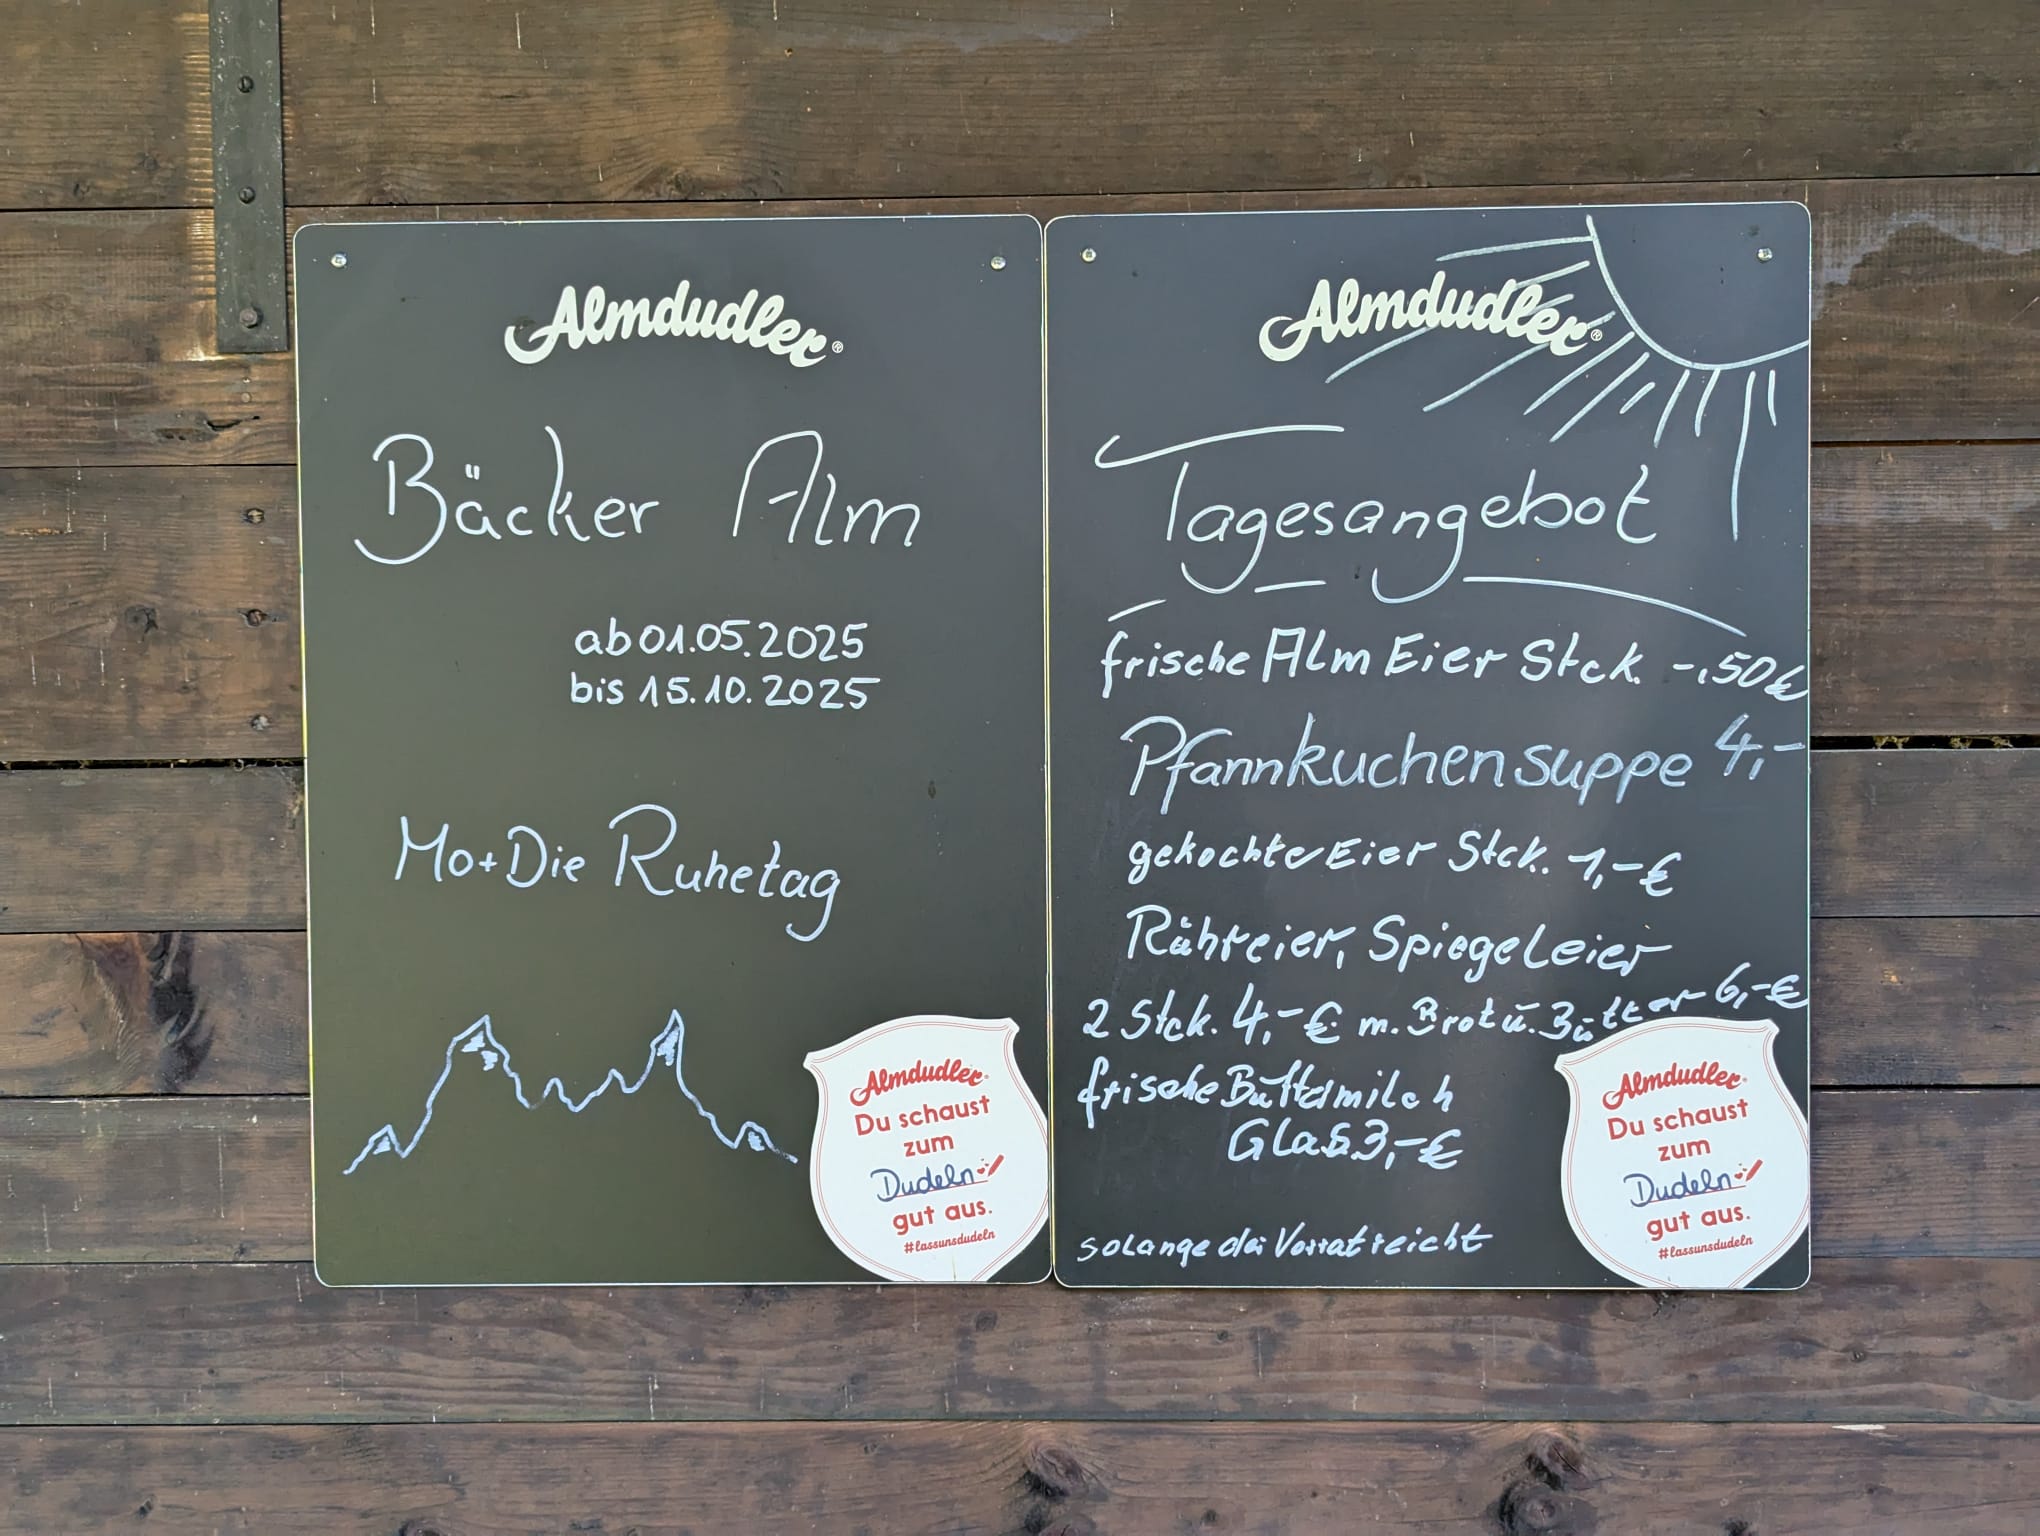 Almdudler®
Bäcker Alm
ab 01.05.2025
bis 15.10.2025
Mo+Die Ruhetag
Almdudler
Du schaust
zum
Dudeln
gut aus.
#lassunsdudeln
Almdudler®
Tagesangebot
frische Alm Eier Stck. -.50 €
Pfannkuchensuppe 4,-
gekochte Eier Stck. 1,-€
Rühreier, Spiegeleier
2 Stck. 4,-€ m. Brot u. Butter 6,-€
frische Buttermilch
Glas 3,-€
solange der Vorrat reicht
Almdudler
Du schaust
zum
Dudeln
gut aus.
#lassunsdudeln